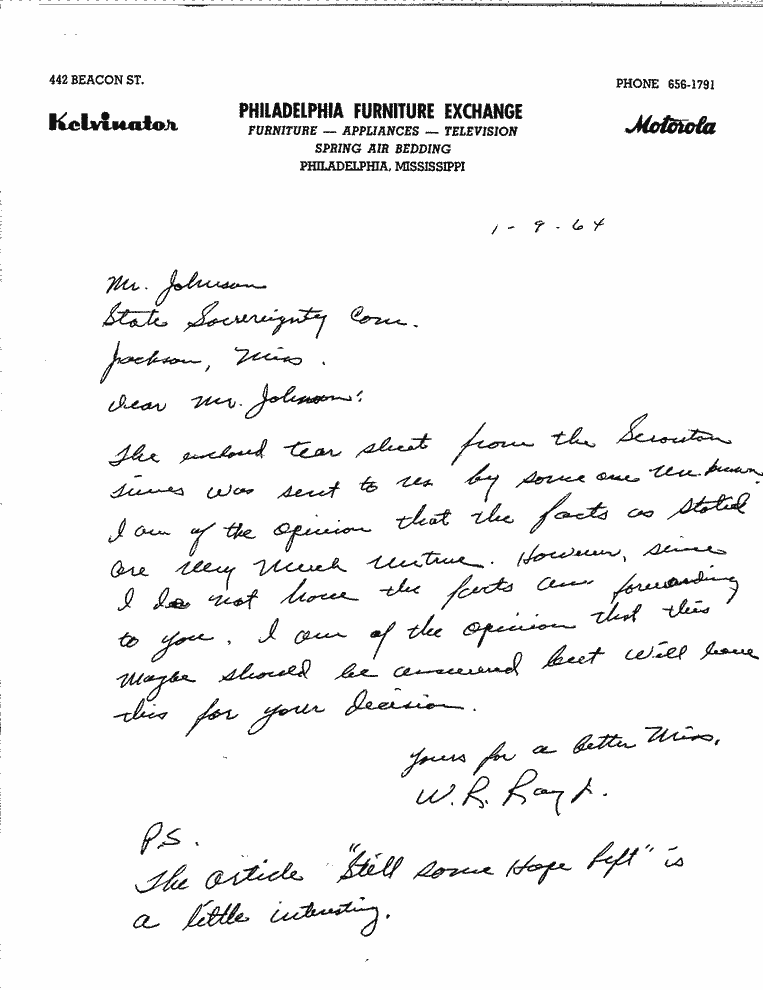 442 BEACON ST.
PHONE 656-1791
Kelvinator
PHILADELPHIA FURNITURE EXCHANGE
Motorola
FURNITURE — APPLIANCES — TELEVISION
SPRING AIR BEDDING
PHILADELPHIA, MISSISSIPPI
1-9-64
Mr. Johnson
State Sovereignty Com.
Jackson, Miss.
Dear Mr. Johnson:
The enclosed tear sheet from the Scranton
Times was sent to us by some one unknown.
I am of the opinion that the facts as stated
are very much untrue. However, since
I do not have the facts am forwarding
to you. I am of the opinion that this
maybe should be answered but will leave
this for your decision.
Yours for a better Miss.
W. R. Ray
P.S.
The article "Still some Hope Left" is
a little interesting.